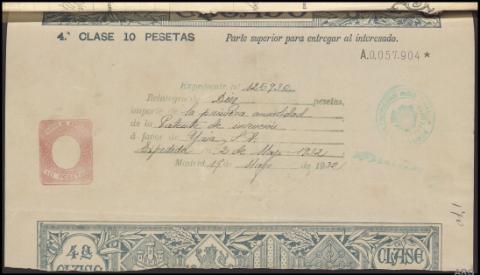 4.ª CLASE 10 PESETAS Parte superior para entregar al interesado.
A.0,057.904 *
Expediente n.º 125.930
Reintegro de Diez pesetas,
importe de la primera anualidad
de la Patente de invención
á favor de
Expedida 2 de Mayo 1932
Madrid 17 de Mayo de 1932
10 PESETAS
4.ª CLASE
CLASE